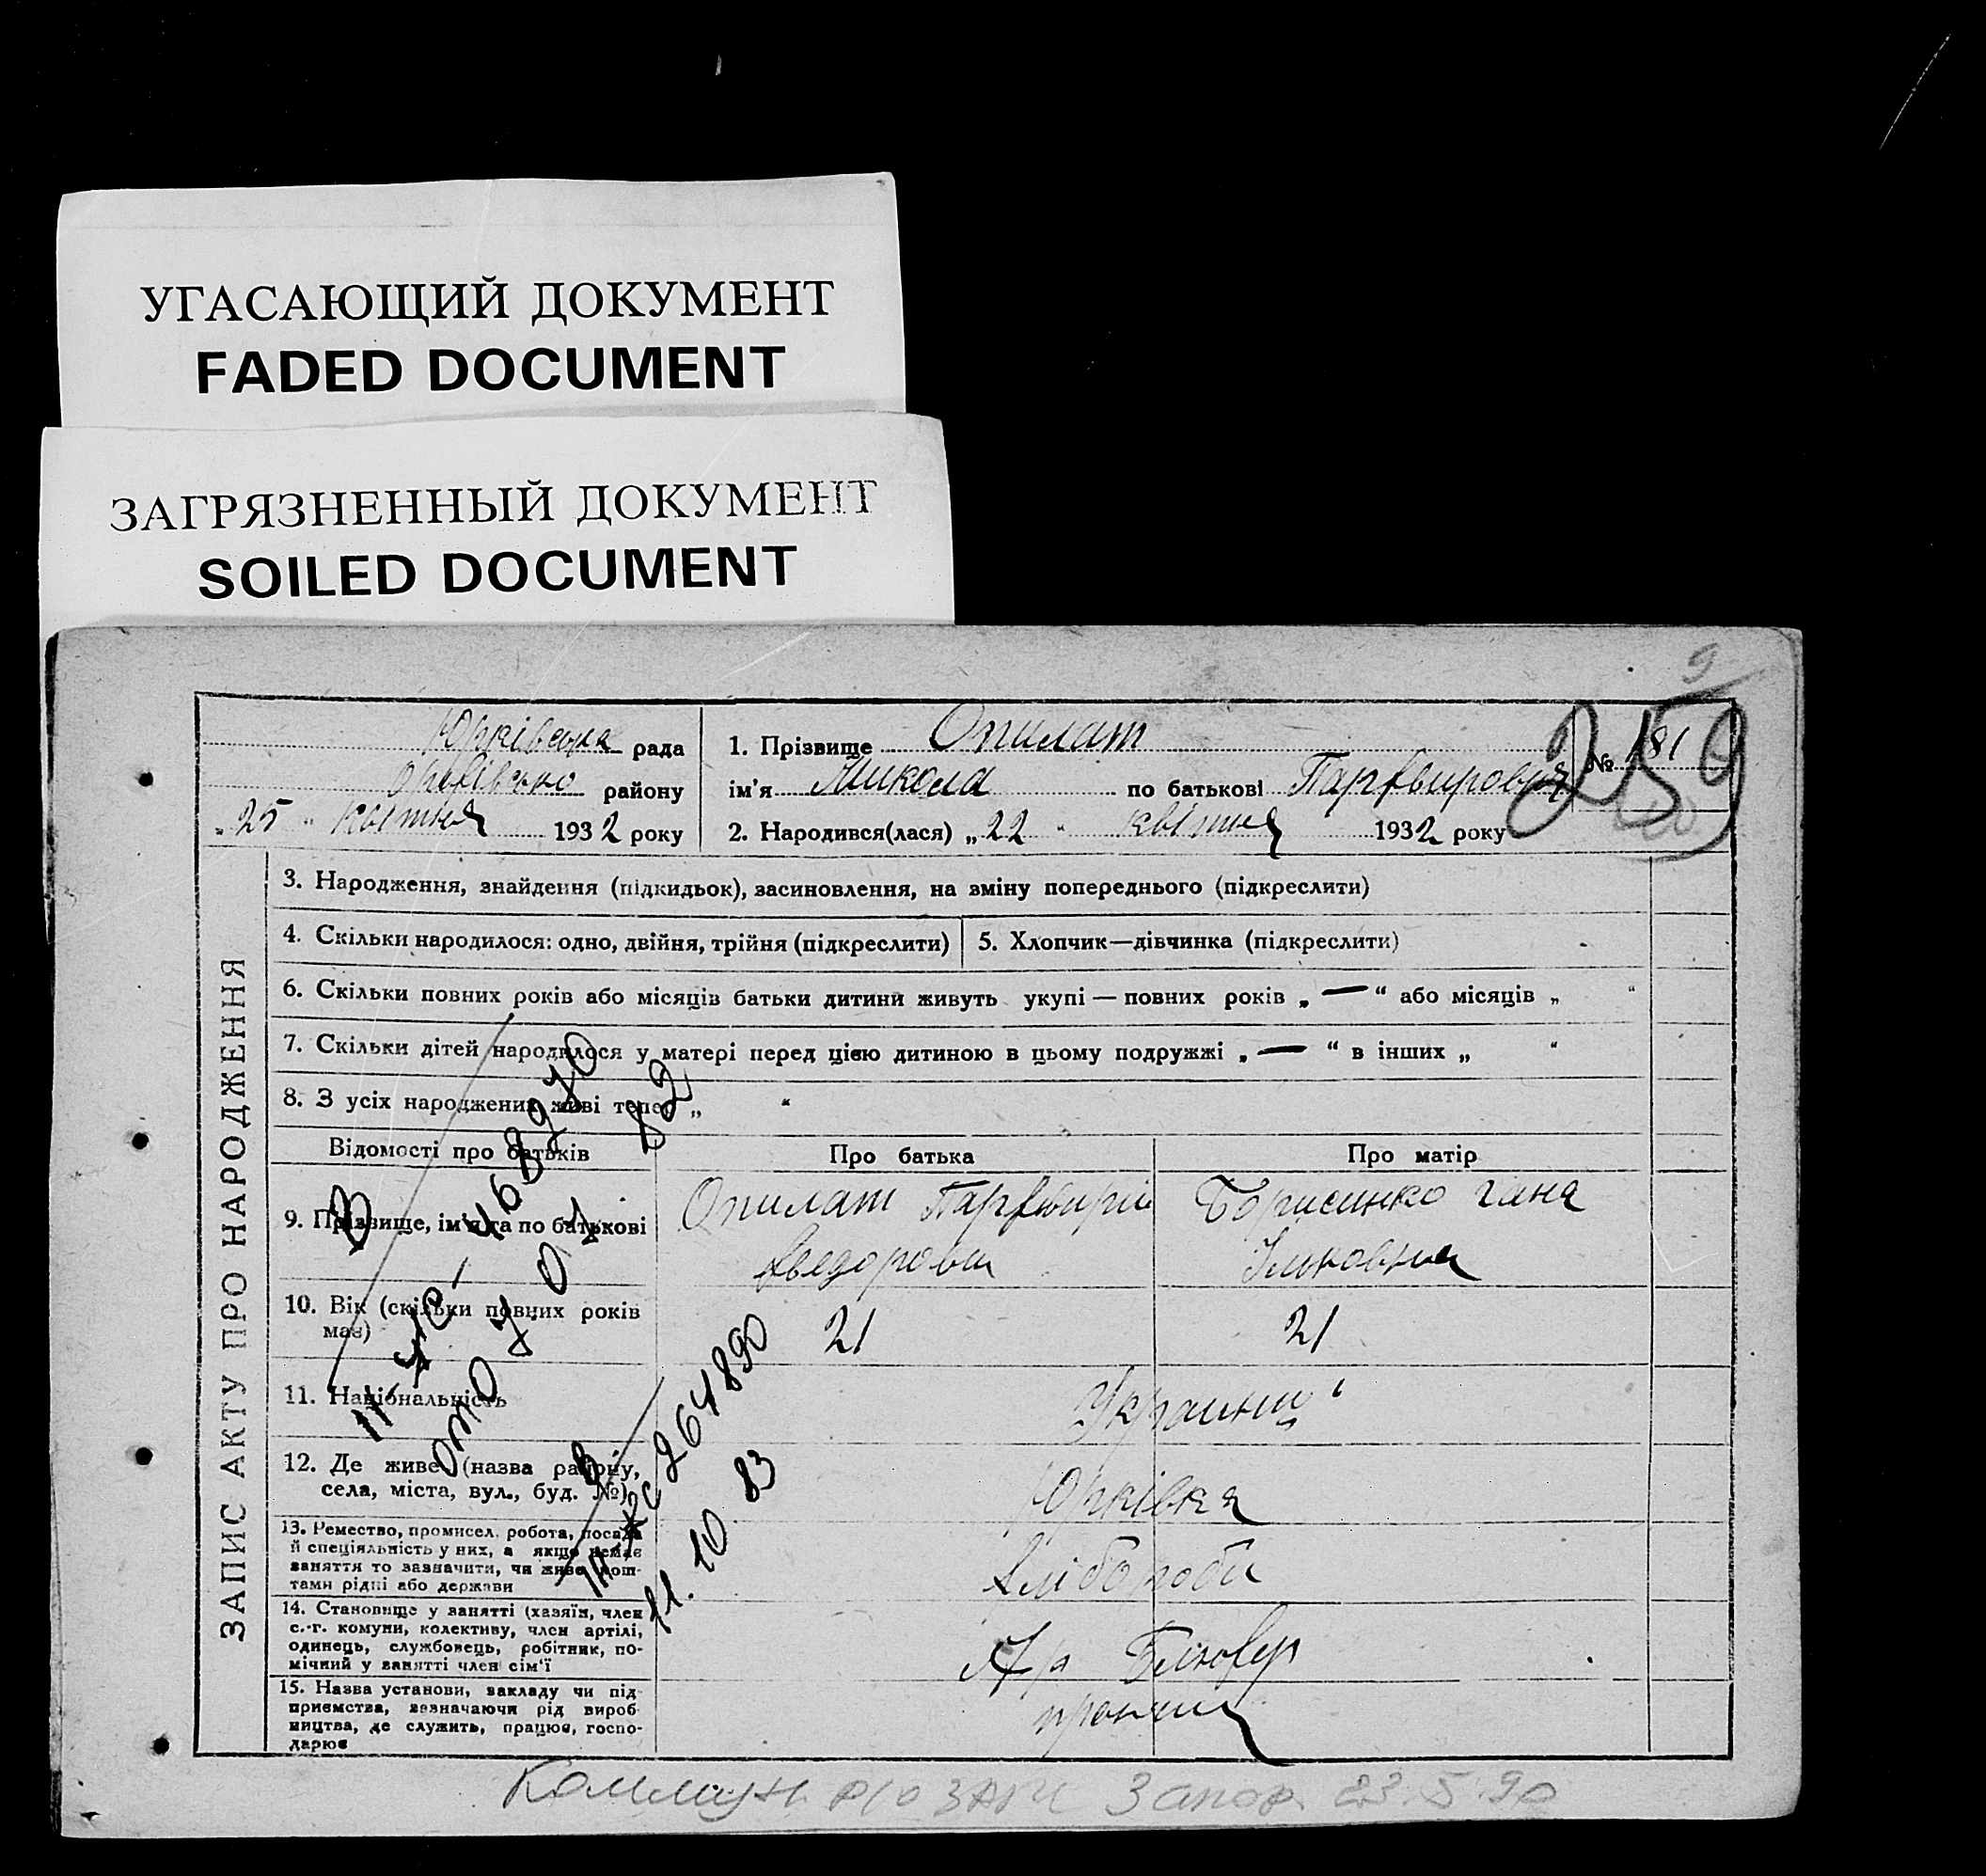 УГАСАЮЩИЙ ДОКУМЕНТ
FADED DOCUMENT
ЗАГРЯЗНЕННЫЙ ДОКУМЕНТ
SOILED DOCUMENT
9
Юрківська рада
Оріхівсько району
„25“ квітня 1932 року
1. Прізвище Опилат
ім'я Микола по батькові Парфвирович
2. Народився(лася) „22“ квітня 1932 року
№ 181
259
ЗАПИС АКТУ ПРО НАРОДЖЕННЯ
3. Народження, знайдення (підкидьок), засиновлення, на зміну попереднього (підкреслити)
4. Скільки народилося: одно, двійня, трійня (підкреслити)
5. Хлопчик—дівчинка (підкреслити)
6. Скільки повних років або місяців батьки дитини живуть укупі — повних років „—“ або місяців „ “
7. Скільки дітей народилося у матері перед цією дитиною в цьому подружжі „—“ в інших „ “
8. З усіх народжених живі тепер „ “
Відомості про батьків
Про батька
Про матір
9. Прізвище, ім'я та по батькові
Опилат Парфвирій
Борисинко Гана
Ильковна
10. Вік (скільки повних років має)
21
21
11. Національність
Украинці
12. Де живе (назва району, села, міста, вул., буд. №)
Юрківка
13. Ремество, промисел, робота, посада й спеціяльність у них, а якщо немає заняття то зазначити, чи живе кош-
тами рідні або держави
Хлібороби
14. Становище у занятті (хазяїн, член с.-г. комуни, колективу, член артілі, одинець, службовець, робітник, по-
мічний у занятті член сім'ї
15. Назва установи, закладу чи під-
приємства, зазначаючи рід вироб-
ництва, де служить, працює, госпо-
дарює
468970
от 07 01 82
264890
11.10 83
Запор. 23.5.90